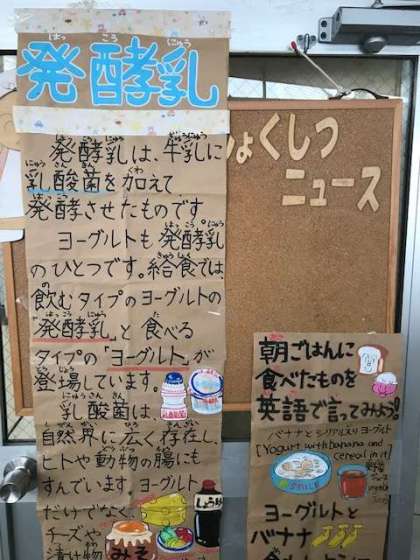 発酵乳
発酵乳は、牛乳に
乳酸菌を加えて
発酵させたものです
ヨーグルトも発酵乳
のひとつです。給食では
飲むタイプのヨーグルトの
「発酵乳」と食べる
タイプの「ヨーグルト」が
登場しています。
乳酸菌は、
自然界に広く存在し、
ヒトや動物の腸にも
すんでいます。ヨーグルト
だけでなく、
チーズや
漬け物
みそ
しょうゆ
ょくしつ
ニュース
朝ごはんに
食べたものを
英語で言ってみよう!
バナナとシリアル入りヨーグルト
[Yogurt with banana and
cereal in it]
ヨーグルトと
バナナ